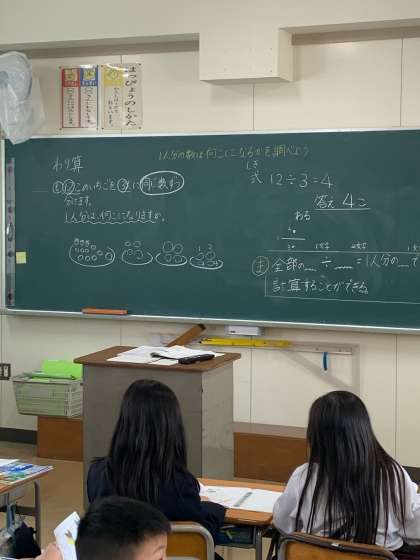 はっぴょうのしかた
わり算
1人分の数は何こになるかを調べよう
⑫このいちごを③人に同じ数ずつ
分けます。
1人分は、何こになりますか。
しき
式 12÷3=4
答え 4こ
わる
ま 全部の__÷__=1人分の
計算することができる